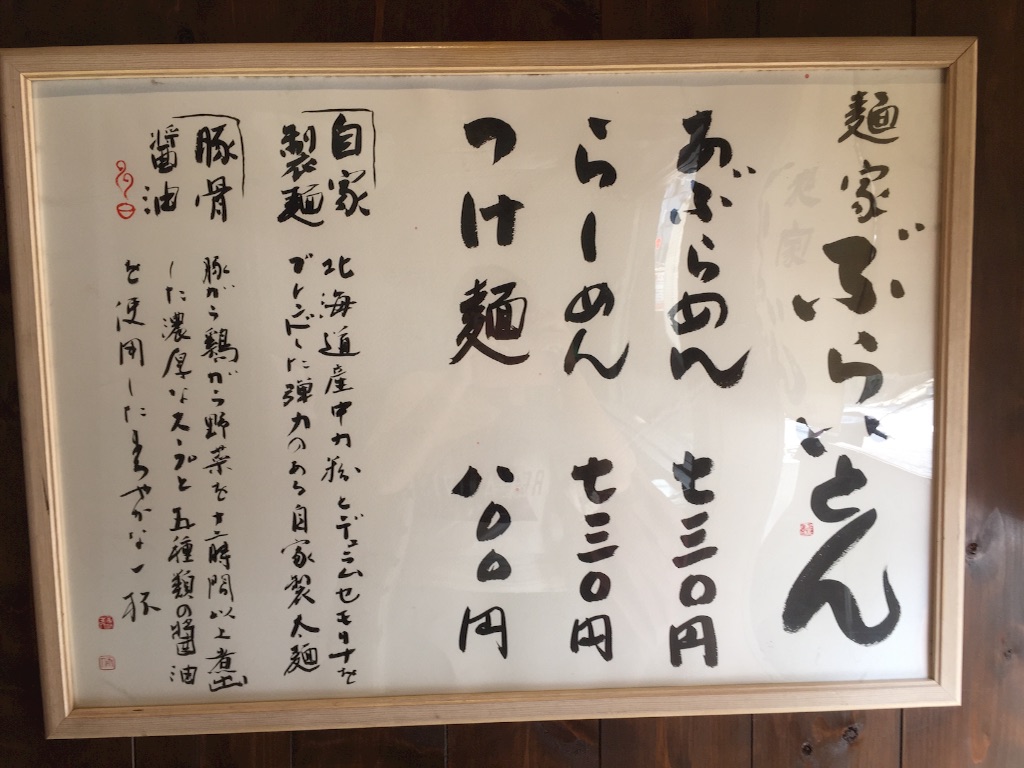 麺家ぶらいとん
あぶらめん 七三〇円
らーめん 七三〇円
つけ麺 八〇〇円
自家
製麺
北海道産中力粉とデュラムセモリナを
ブレンドした弾力のある自家製太麺
豚骨
醤油
豚がら鶏がら野菜を十二時間以上煮出
した濃厚なスープと五種類の醤油
を使用したまろやかな一杯